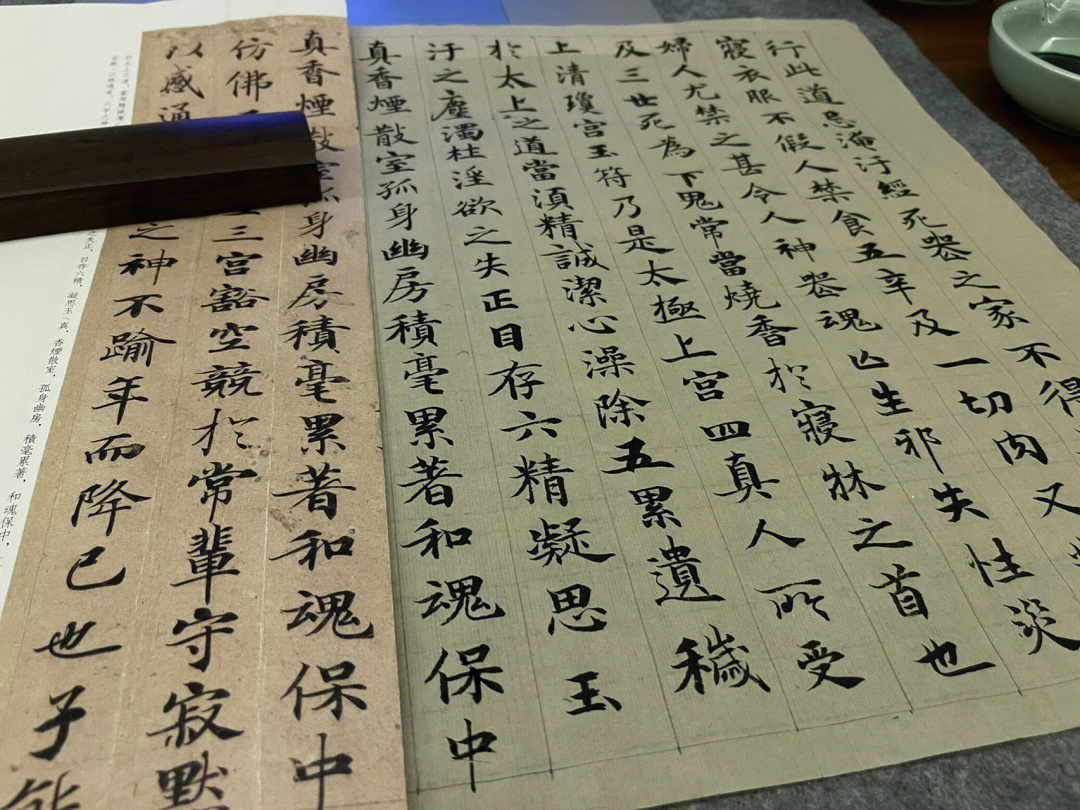 行此道忌淹汙經死喪之家不得
寢衣服不假人禁食五辛及一切肉又
婦人尤禁之甚令人神喪魂亡生邪失性災
及三世死為下鬼常當燒香於寢牀之首也
上清瓊宮玉符乃是太極上宮四真人所受
於太上之道當須精誠潔心澡除五累遺穢
汙之塵濁杜淫欲之失正目存六精凝思玉
真香煙散室孤身幽房積毫累著和魂保中
真香煙散室孤身幽房積毫累著和魂保中
仿佛三宮豁空競於常輩守寂默
以感通之神不踰年而降己也子能
之失正，目存六精，凝思玉真，香煙散室，孤身幽房，積毫累著，和魂保中，